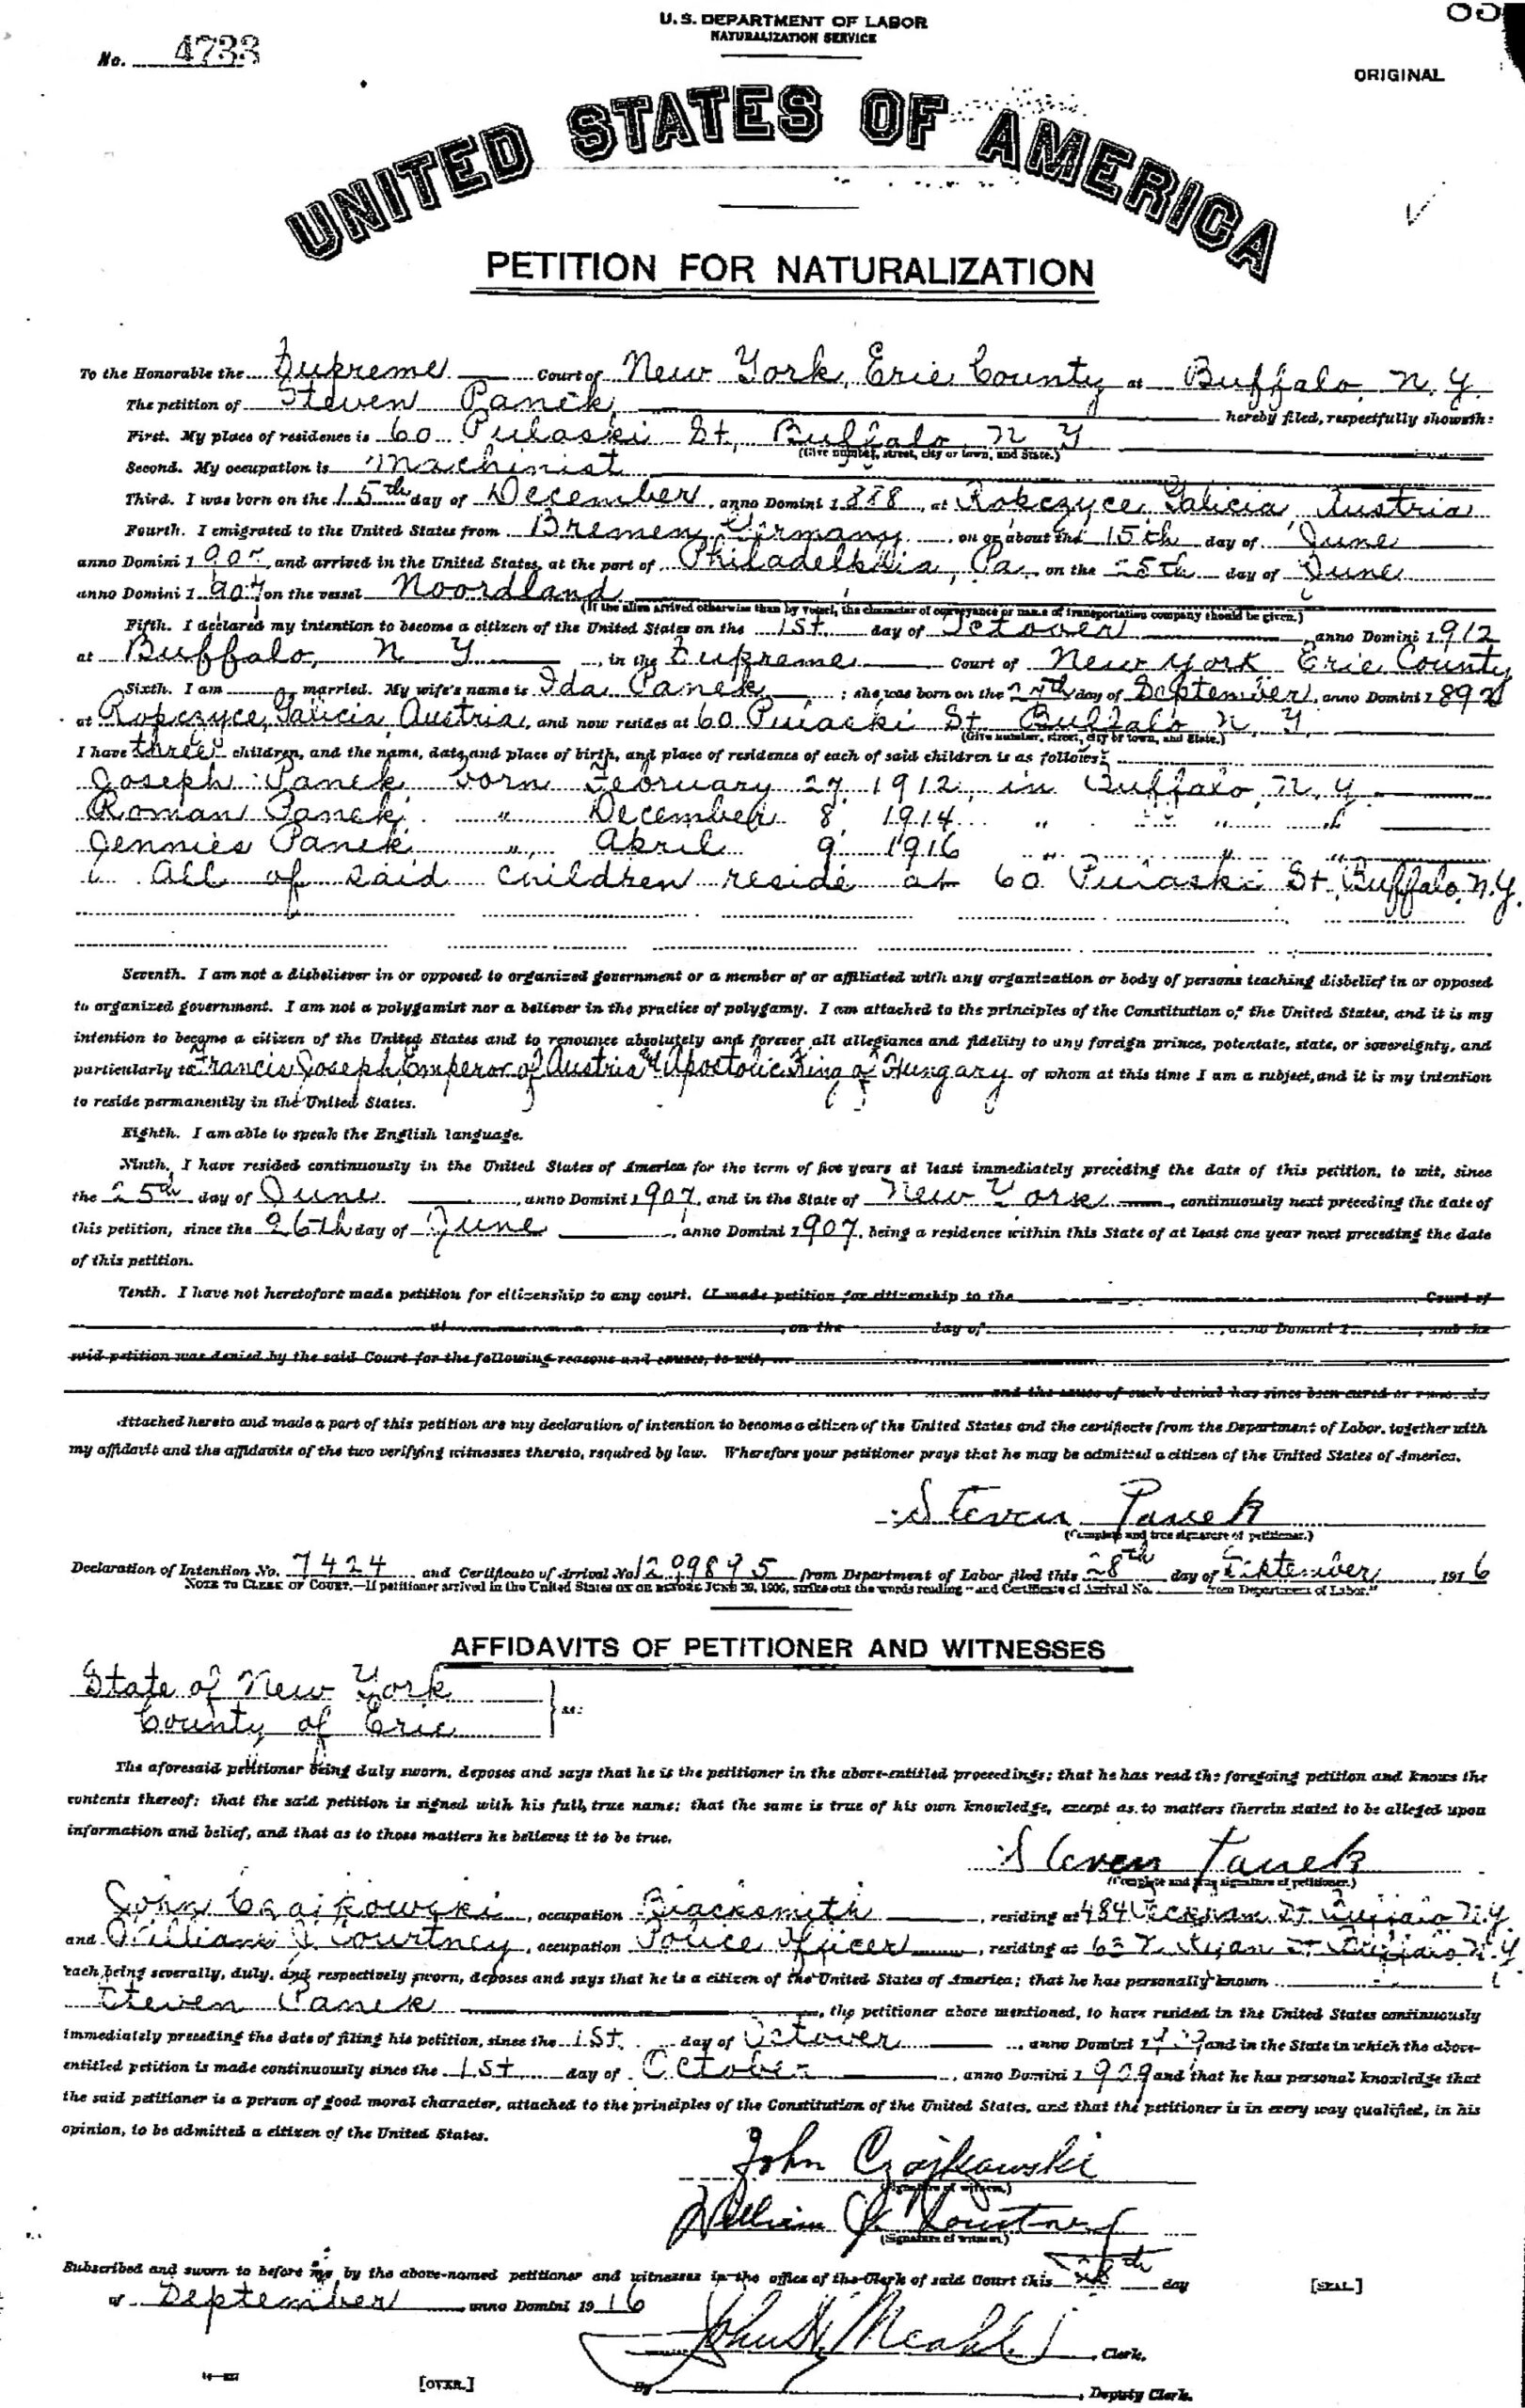 U. S. DEPARTMENT OF LABOR
NATURALIZATION SERVICE
No. 4733
ORIGINAL
UNITED STATES OF AMERICA
PETITION FOR NATURALIZATION
To the Honorable the Supreme Court of New York, Erie County at Buffalo, N. Y.
The petition of Steven Panek hereby filed, respectfully showeth:
First. My place of residence is 60 Pulaski St, Buffalo, N Y
(Give number, street, city or town, and State.)
Second. My occupation is Machinist
Third. I was born on the 15th day of December, anno Domini 1888, at Ropczyce Galicia, Austria
Fourth. I emigrated to the United States from Bremen, Germany, on or about the 15th day of June
anno Domini 1907, and arrived in the United States, at the port of Philadelphia, Pa, on the 25th day of June
anno Domini 1907 on the vessel Noordland
(If the alien arrived otherwise than by vessel, the character of conveyance or name of transportation company should be given.)
Fifth. I declared my intention to become a citizen of the United States on the 1st day of October, anno Domini 1912
at Buffalo, N Y, in the Supreme Court of New York Erie County
Sixth. I am married. My wife's name is Ida Panek; she was born on the day of September, anno Domini
at Ropczyce, Galicia, Austria, and now resides at 60 Pulaski St. Buffalo N. Y.
(Give number, street, city or town, and State.)
I have three children, and the name, date, and place of birth, and place of residence of each of said children is as follows:
Joseph Panek born February 27, 1912, in Buffalo, N. Y.
Roman Panek " December 8, 1914 " " " "
Jennie Panek, " April 9 1916 " " "
All of said children reside at 60 Pulaski St. Buffalo. N. Y.
Seventh. I am not a disbeliever in or opposed to organized government or a member of or affiliated with any organization or body of persons teaching disbelief in or opposed
to organized government. I am not a polygamist nor a believer in the practice of polygamy. I am attached to the principles of the Constitution of the United States, and it is my
intention to become a citizen of the United States and to renounce absolutely and forever all allegiance and fidelity to any foreign prince, potentate, state, or sovereignty, and
particularly to Francis Joseph, Emperor of Austria & Apostolic King of Hungary of whom at this time I am a subject, and it is my intention
to reside permanently in the United States.
Eighth. I am able to speak the English language.
Ninth. I have resided continuously in the United States of America for the term of five years at least immediately preceding the date of this petition, to wit, since
the 25th day of June, anno Domini 1907, and in the State of New York, continuously next preceding the date of
this petition, since the 26th day of June, anno Domini 1907, being a residence within this State of at least one year next preceding the date
of this petition.
Tenth. I have not heretofore made petition for citizenship to any court. (I made petition for citizenship to the Court of
at, on the day of, anno Domini 1, and the
said petition was denied by the said Court for the following reasons and causes, to wit,
and the cause of such denial has since been cured or removed.
Attached hereto and made a part of this petition are my declaration of intention to become a citizen of the United States and the certificate from the Department of Labor, together with
my affidavit and the affidavits of the two verifying witnesses thereto, required by law. Wherefore your petitioner prays that he may be admitted a citizen of the United States of America.
Steven Panek
(Complete and true signature of petitioner.)
Declaration of Intention No. 7424 and Certificate of Arrival No. from Department of Labor filed this 28th day of September, 1916
NOTE TO CLERK OF COURT.—If petitioner arrived in the United States ON OR BEFORE JUNE 29, 1906, strike out the words reading "and Certificate of Arrival No. from Department of Labor."
AFFIDAVITS OF PETITIONER AND WITNESSES
State of New York
County of Erie
} ss:
The aforesaid petitioner being duly sworn, deposes and says that he is the petitioner in the above-entitled proceedings; that he has read the foregoing petition and knows the
contents thereof; that the said petition is signed with his full, true name; that the same is true of his own knowledge, except as to matters therein stated to be alleged upon
information and belief, and that as to those matters he believes it to be true.
Steven Panek
(Complete and true signature of petitioner.)
John Czajkowski, occupation Blacksmith, residing at 484 St. Buffalo N.Y.
and William J Courtney, occupation Police Officer, residing at St Buffalo. N. Y
each being severally, duly, and respectively sworn, deposes and says that he is a citizen of the United States of America; that he has personally known
Steven Panek, the petitioner above mentioned, to have resided in the United States continuously
immediately preceding the date of filing his petition, since the 1st. day of October, anno Domini 1909 and in the State in which the above-
entitled petition is made continuously since the 1st day of October, anno Domini 1909 and that he has personal knowledge that
the said petitioner is a person of good moral character, attached to the principles of the Constitution of the United States, and that the petitioner is in every way qualified, in his
opinion, to be admitted a citizen of the United States.
John Czajkowski
(Signature of witness.)
William J. Courtney
(Signature of witness.)
Subscribed and sworn to before me by the above-named petitioner and witnesses in the office of the Clerk of said Court this day
[SEAL.]
of September, anno Domini 1916
John H. Meahl, Clerk.
[OVER.]
By, Deputy Clerk.